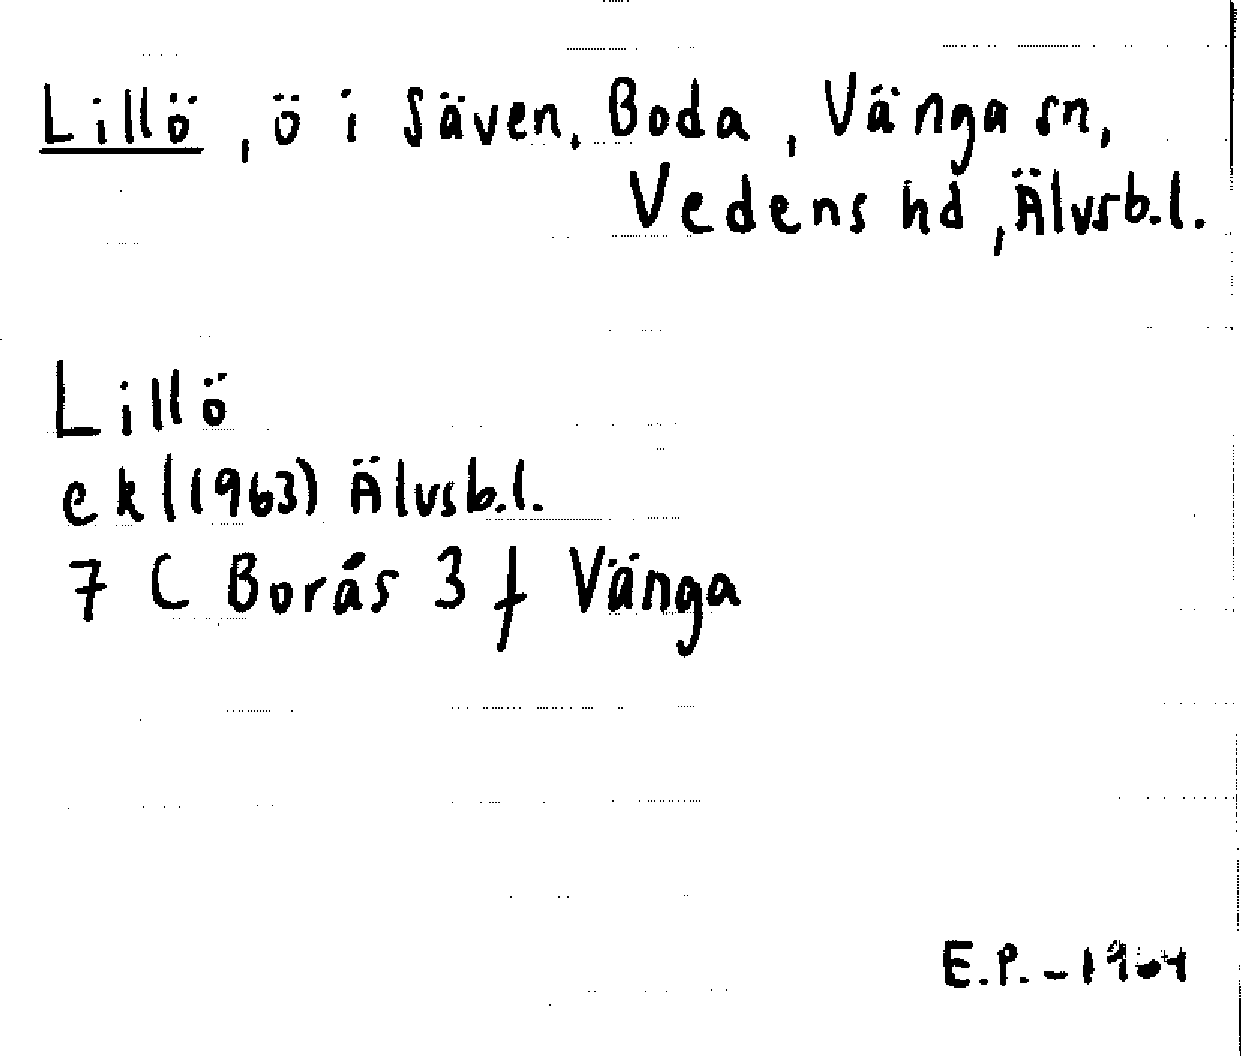 Lillö, ö i Säven, Boda, Vänga sn,
Vedens hd, Älvsb.l.
Lillö
ek (1963) Älvsb.l.
7 C Borås 3 f Vänga
E.P. - 1964